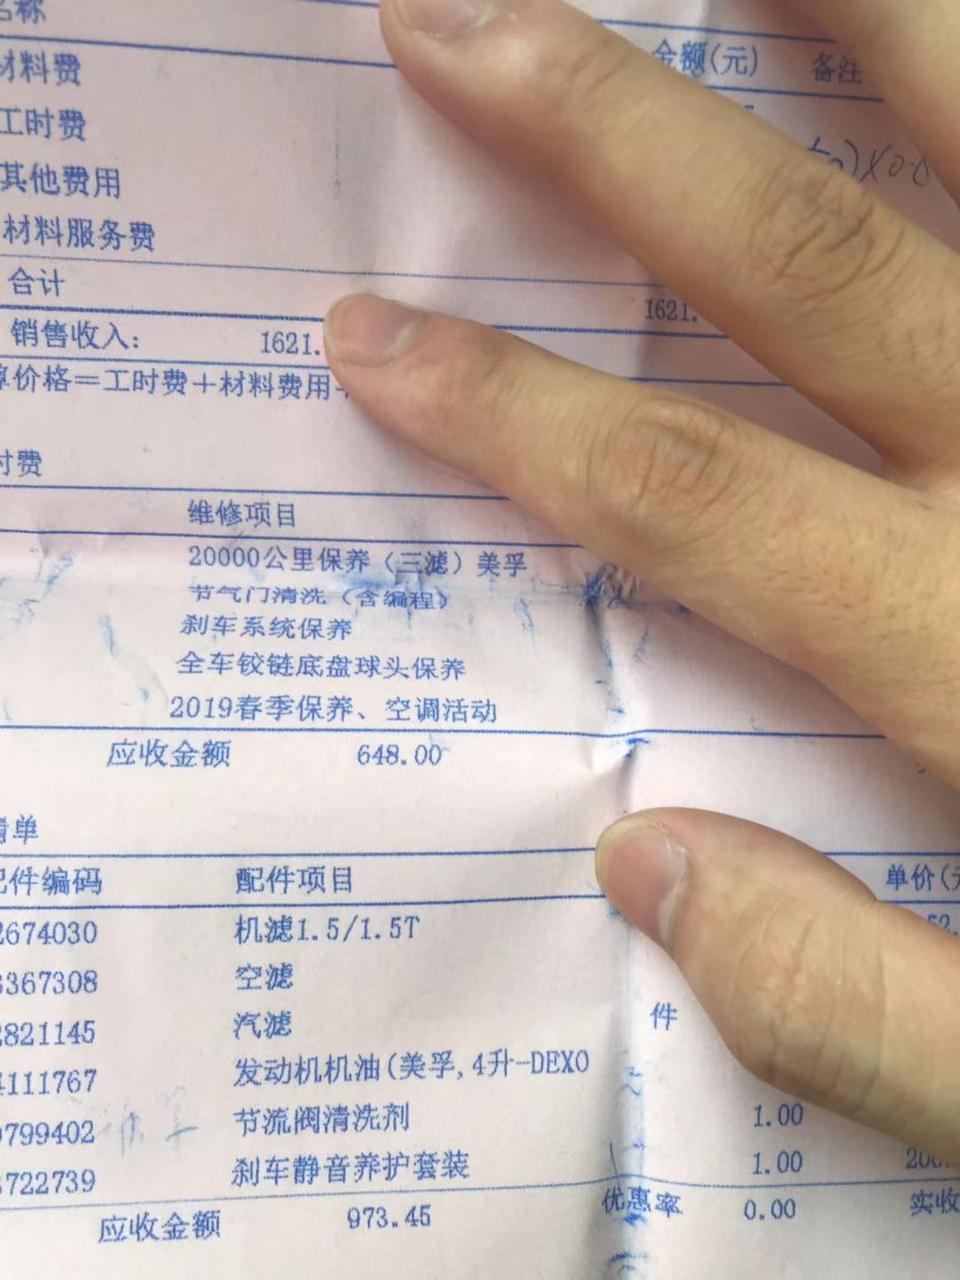 名称 金额(元) 备注
材料费
工时费
其他费用 )×0.8
材料服务费
合计 1621.
销售收入: 1621.
算价格=工时费+材料费用+
时费
维修项目
20000公里保养（三滤）美孚
节气门清洗（含编程）
刹车系统保养
全车铰链底盘球头保养
2019春季保养、空调活动
应收金额 648.00
清单
配件编码 配件项目 单价(元
2674030 机滤1.5/1.5T 52.
3367308 空滤
2821145 汽滤 件
4111767 发动机机油(美孚,4升-DEXO
9799402 节流阀清洗剂 1.00
3722739 刹车静音养护套装 1.00 200.
应收金额 973.45 优惠率 0.00 实收